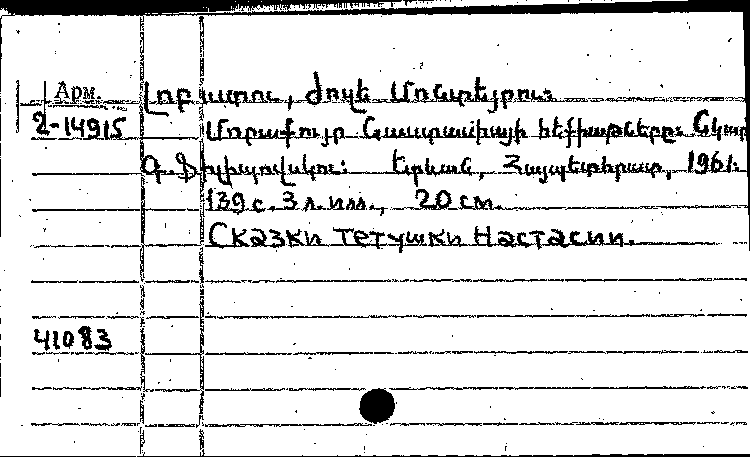 Арм.
Լոբատու, Ժոզե Մոնտեյրու:
2-14915
Մորաքույր Նաստասիայի հեքիաթները: Նկար
Գ. Ֆիլիպովսկու: Երևան, Հայպետհրատ, 1961.
139 с. 3 л. илл., 20 см.
Сказки тетушки Настасии.
41083